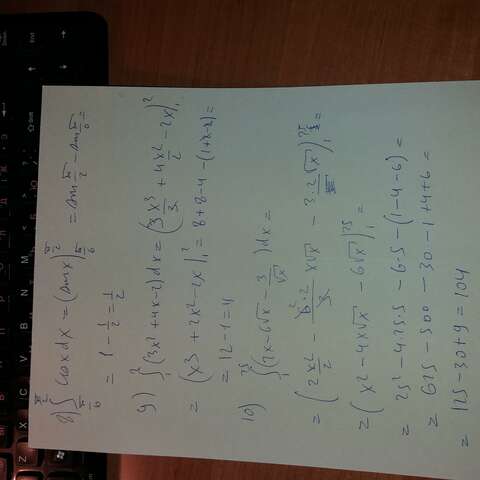 8) ∫_{π/6}^{π/2} cosx dx = (sinx)|_{π/6}^{π/2} = sin π/2 - sin π/6 =
= 1 - 1/2 = 1/2
9) ∫_1^2 (3x² + 4x - 2) dx = (3x³/3 + 4x²/2 - 2x)|_1^2
= (x³ + 2x² - 2x)|_1^2 = 8 + 8 - 4 - (1+2-2) =
= 12 - 1 = 11
10) ∫_1^{25} (2x - 6√x - 3/√x) dx =
= (2x²/2 - 6·2/3 x√x - 3·2√x)|_1^{25} =
= (x² - 4x√x - 6√x)|_1^{25} =
= 25² - 4·25·5 - 6·5 - (1-4-6) =
= 625 - 500 - 30 - 1 + 4 + 6 =
= 125 - 30 + 9 = 104